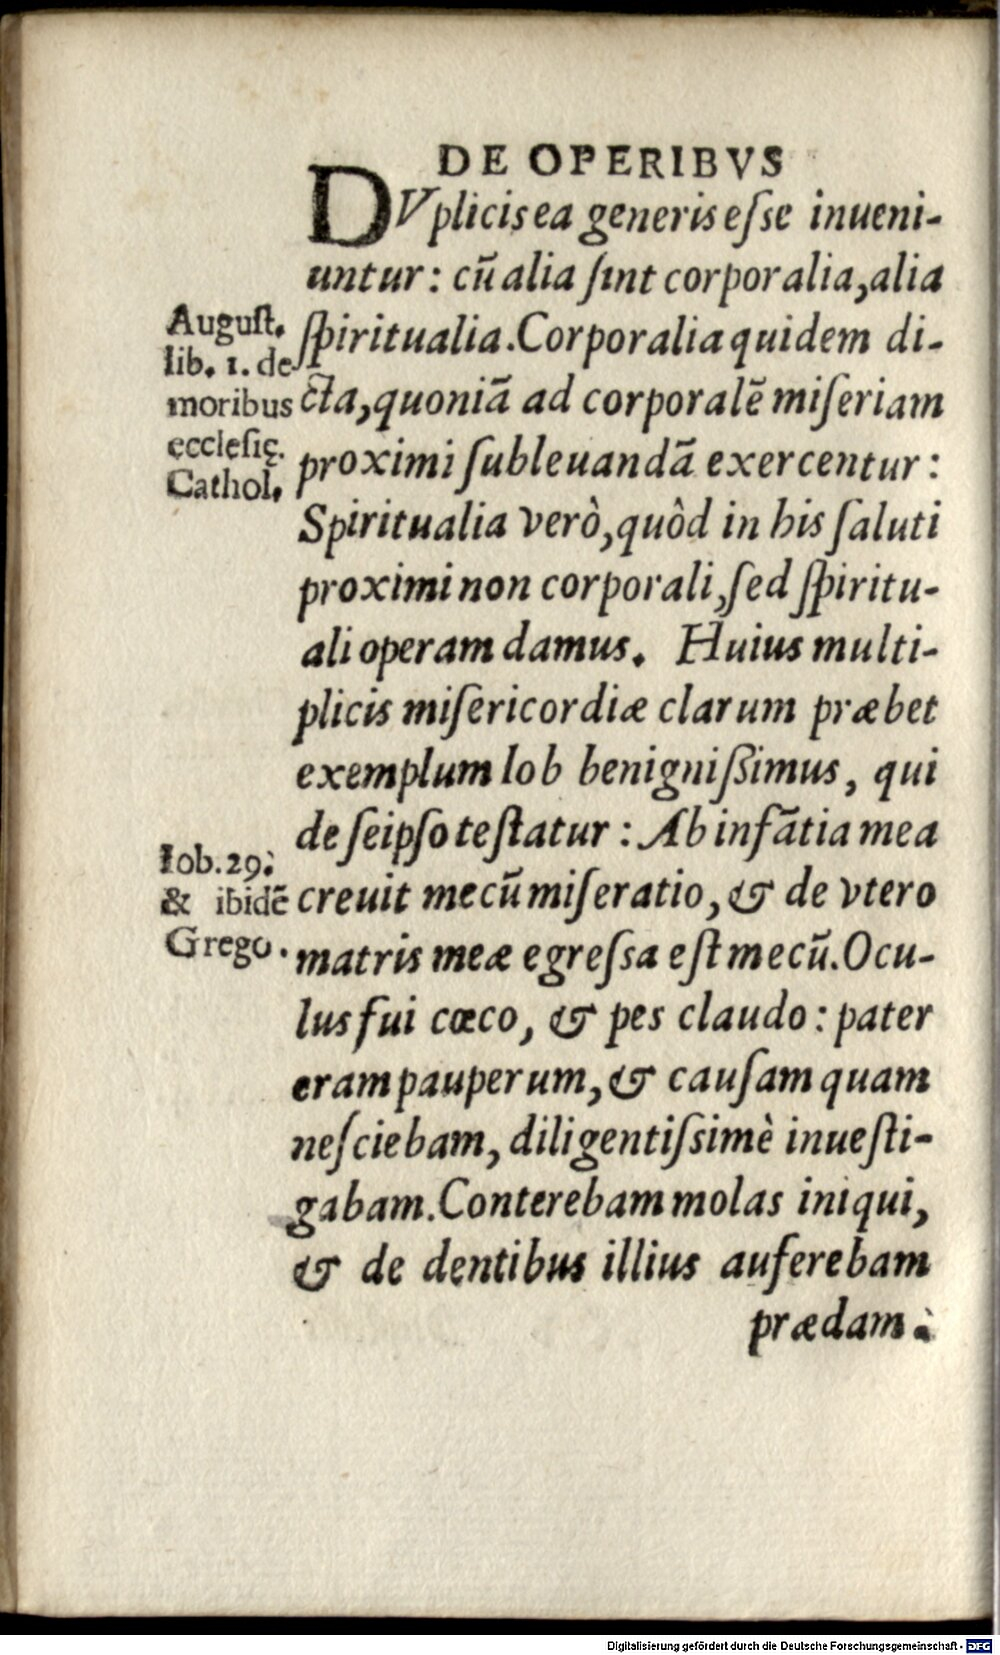 DE OPERIBVS
DVplicis ea generis eſse inueni-
untur: cũ alia ſint corporalia, alia
ſpiritualia. Corporalia quidem di-
cta, quoniã ad corporalẽ miſeriam
proximi ſubleuandã exercentur:
Spiritualia verò, quòd in his ſaluti
proximi non corporali, ſed ſpiritu-
ali operam damus. Huius multi-
plicis miſericordiæ clarum præbet
exemplum Iob benigniſsimus, qui
de ſeipſo teſtatur: Ab infãtia mea
creuit mecũ miſeratio, & de vtero
matris meæ egreſsa eſt mecũ. Ocu-
lus fui cæco, & pes claudo: pater
eram pauperum, & cauſam quam
neſciebam, diligentiſsimè inueſti-
gabam. Conterebam molas iniqui,
& de dentibus illius auferebam
prædam.
Auguſt.
lib. 1. de
moribus
eccleſię.
Cathol.
Iob. 29.
& ibidẽ
Grego.
Digitalisierung gefördert durch die Deutsche Forschungsgemeinschaft - DFG